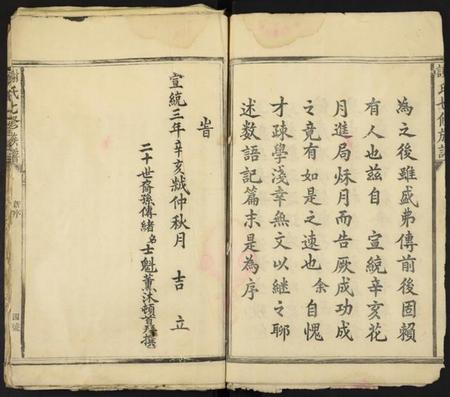 為之後雖盛弗傳前後固賴
有人也茲自 宣統辛亥花
月進局烁月而告厥成功成
之竟有如是之速也余自愧
才疎學淺幸無文以繼之聊
述数語記篇末是為序
旹
宣統三年辛亥歲仲秋月 吉立
二十世裔孫傳緒名士魁薰沐頓首拜撰
謝氏七修族譜